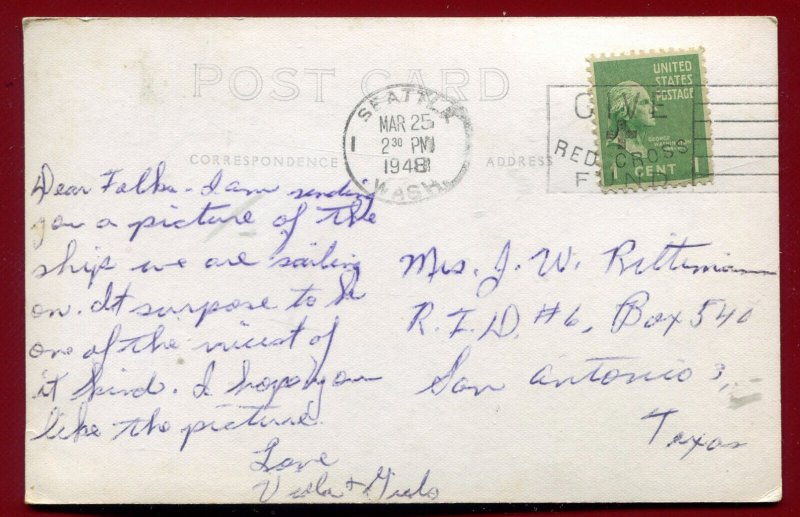 POST CARD
SEATTLE
MAR 25
2 30 PM
1948
WASH.
GIVE
RED CROSS
FUND
UNITED
STATES
POSTAGE
GEORGE WASHINGTON
1 CENT 1
CORRESPONDENCE
ADDRESS
Dear Folks - I am sending
you a picture of the
ship we are sailing
on. It surpose to be
one of the nicest of
it kind. I hope you
like the picture.
Love
Viola +
Mrs. J. W. Rittimann
R.F.D. #6, Box 540
San Antonio 3,
Texas